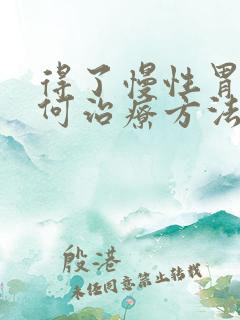 得了慢性胃
何治疗方法
殷港
未经同意禁止转载